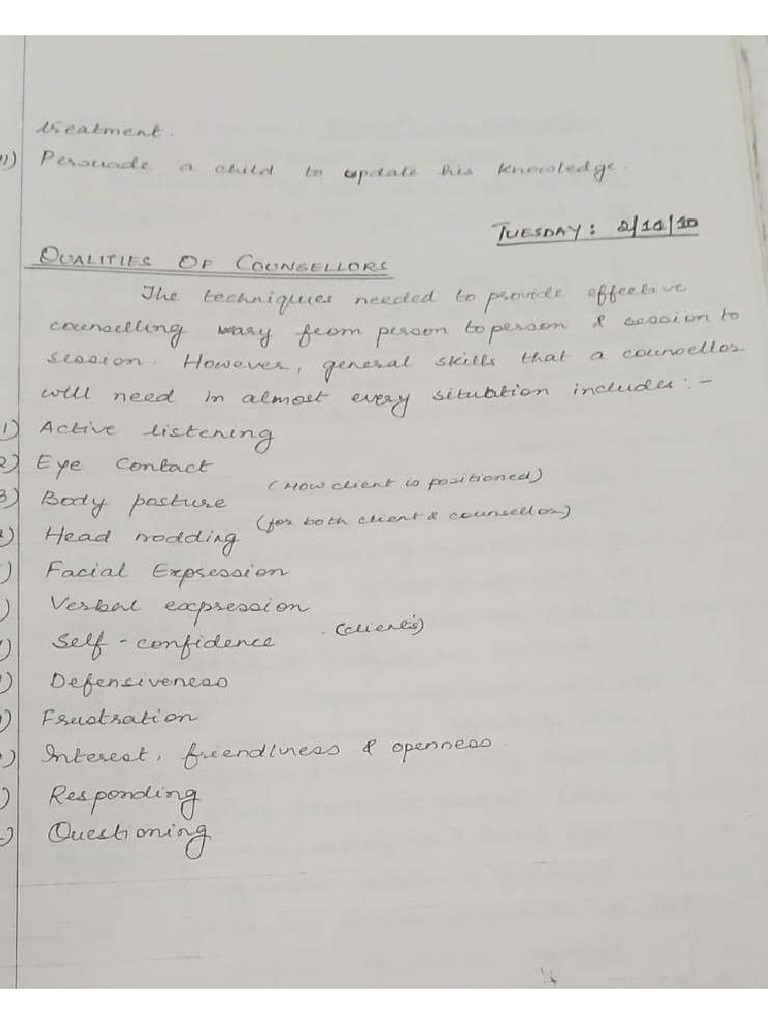 treatment.
11) Persuade a child to update his knowledge.
TUESDAY: 2/11/10
QUALITIES OF COUNSELLORS
The techniques needed to provide effective
counselling vary from person to person & session to
session. However, general skills that a counsellor
will need in almost every situation includes:-
1) Active listening
2) Eye Contact
3) Body posture (How client is positioned)
) Head nodding (for both client & counsellor)
) Facial Expression
) Verbal expression
) Self-confidence (client's)
) Defensiveness
) Frustration
) Interest, friendliness & openness.
) Responding
) Questioning